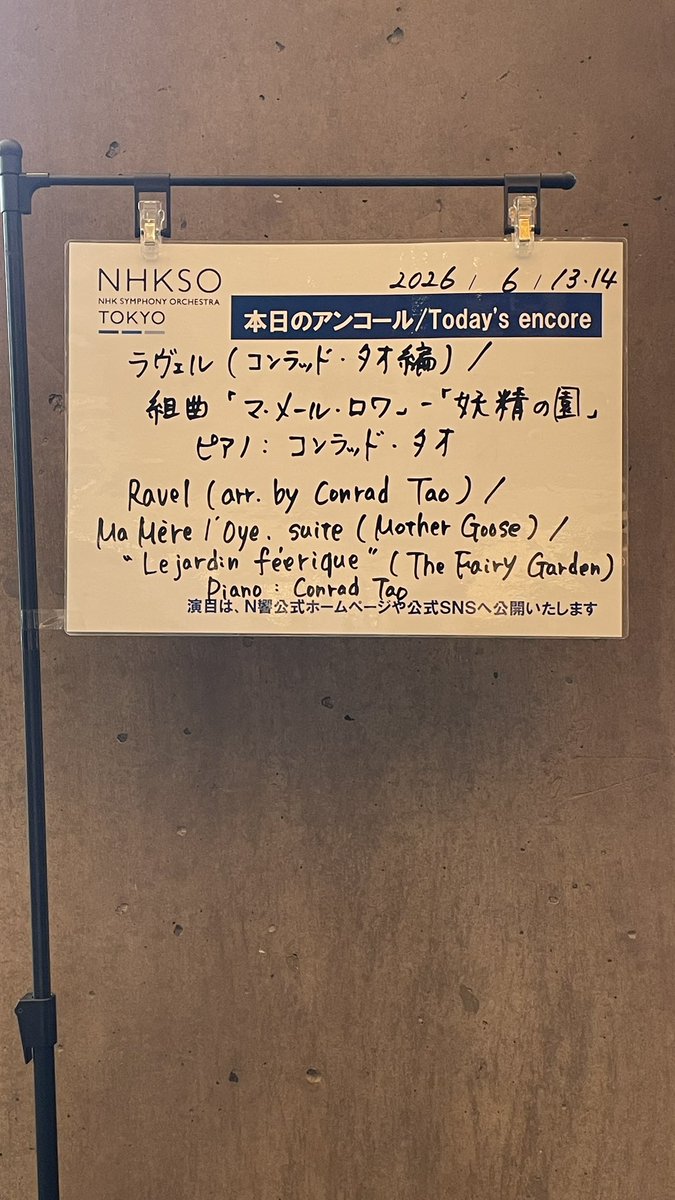 NHKSO
NHK SYMPHONY ORCHESTRA
TOKYO
2026 / 6 / 13.14
本日のアンコール/Today's encore
ラヴェル (コンラッド・タオ編) /
組曲「マ・メール・ロワ」-「妖精の園」
ピアノ: コンラッド・タオ
Ravel (arr. by Conrad Tao) /
Ma Mère l'Oye. suite (Mother Goose) /
"Le jardin féerique" (The Fairy Garden)
Piano : Conrad Tao
演目は、N響公式ホームページや公式SNSへ公開いたします